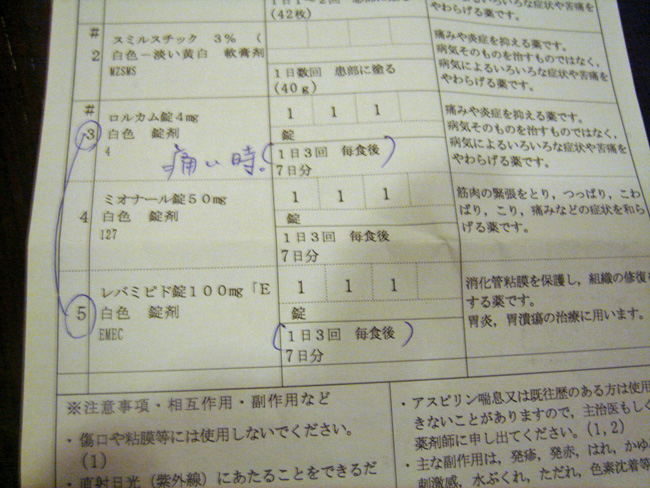 (42枚)
#
2
スミルスチック 3% (
白色−淡い黄白 軟膏剤
MZSMS
1日数回 患部に塗る
(40g)
やわらげる薬です。
痛みや炎症を抑える薬です。
病気そのものを治すものではなく,
病気によるいろいろな症状や苦痛を
やわらげる薬です。
#
3
ロルカム錠4mg
白色 錠剤
4
痛い時。
1 1 1
錠
1日3回 毎食後
7日分
痛みや炎症を抑える薬です。
病気そのものを治すものではなく,
病気によるいろいろな症状や苦痛を
やわらげる薬です。
4
ミオナール錠50mg
白色 錠剤
127
1 1 1
錠
1日3回 毎食後
7日分
筋肉の緊張をとり,つっぱり,こわ
ばり,こり,痛みなどの症状を和ら
げる薬です。
5
レバミピド錠100mg「E
白色 錠剤
EMEC
1 1 1
錠
1日3回 毎食後
7日分
消化管粘膜を保護し,組織の修復を
する薬です。
胃炎,胃潰瘍の治療に用います。
※注意事項・相互作用・副作用など
・傷口や粘膜等には使用しないでください。
(1)
・直射日光(紫外線)にあたることをできるだ
・アスピリン喘息又は既往歴のある方は使用
きないことがありますので,主治医もしく
薬剤師に申し出てください。(1,2)
・主な副作用は,発疹,発赤,はれ,かゆ
刺激感,水ぶくれ,ただれ,色素沈着等